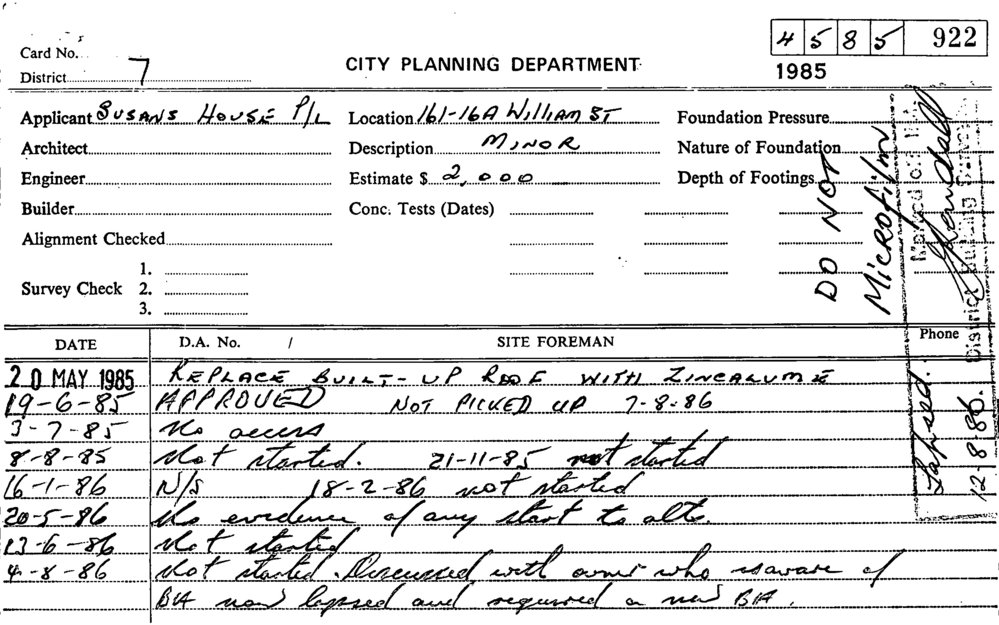 4 5 8 5 922
Card No.
1985
District 7
CITY PLANNING DEPARTMENT
Applicant SUSANS HOUSE P/L Location 161-16A WILLIAM ST Foundation Pressure
Architect Description MINOR Nature of Foundation
Engineer Estimate $ 2,000 Depth of Footings
Builder Conc. Tests (Dates)
Alignment Checked
1.
Survey Check 2.
3.
DO NOT
Microfilm
District Building Surveyor
Lapsed.
12-8-86.
DATE D.A. No. / SITE FOREMAN Phone
20 MAY 1985 REPLACE BUILT-UP ROOF WITH ZINCALUME
19-6-85 APPROVED NOT PICKED UP 7-8-86
3-7-85 No access
8-8-85 Not started. 21-11-85 not started
16-1-86 N/S 18-2-86 not started
20-5-86 No evidence of any start to alts.
13-6-86 Not started
4-8-86 Not started. Discussed with owner who is aware of
BA now lapsed and required a new BA.